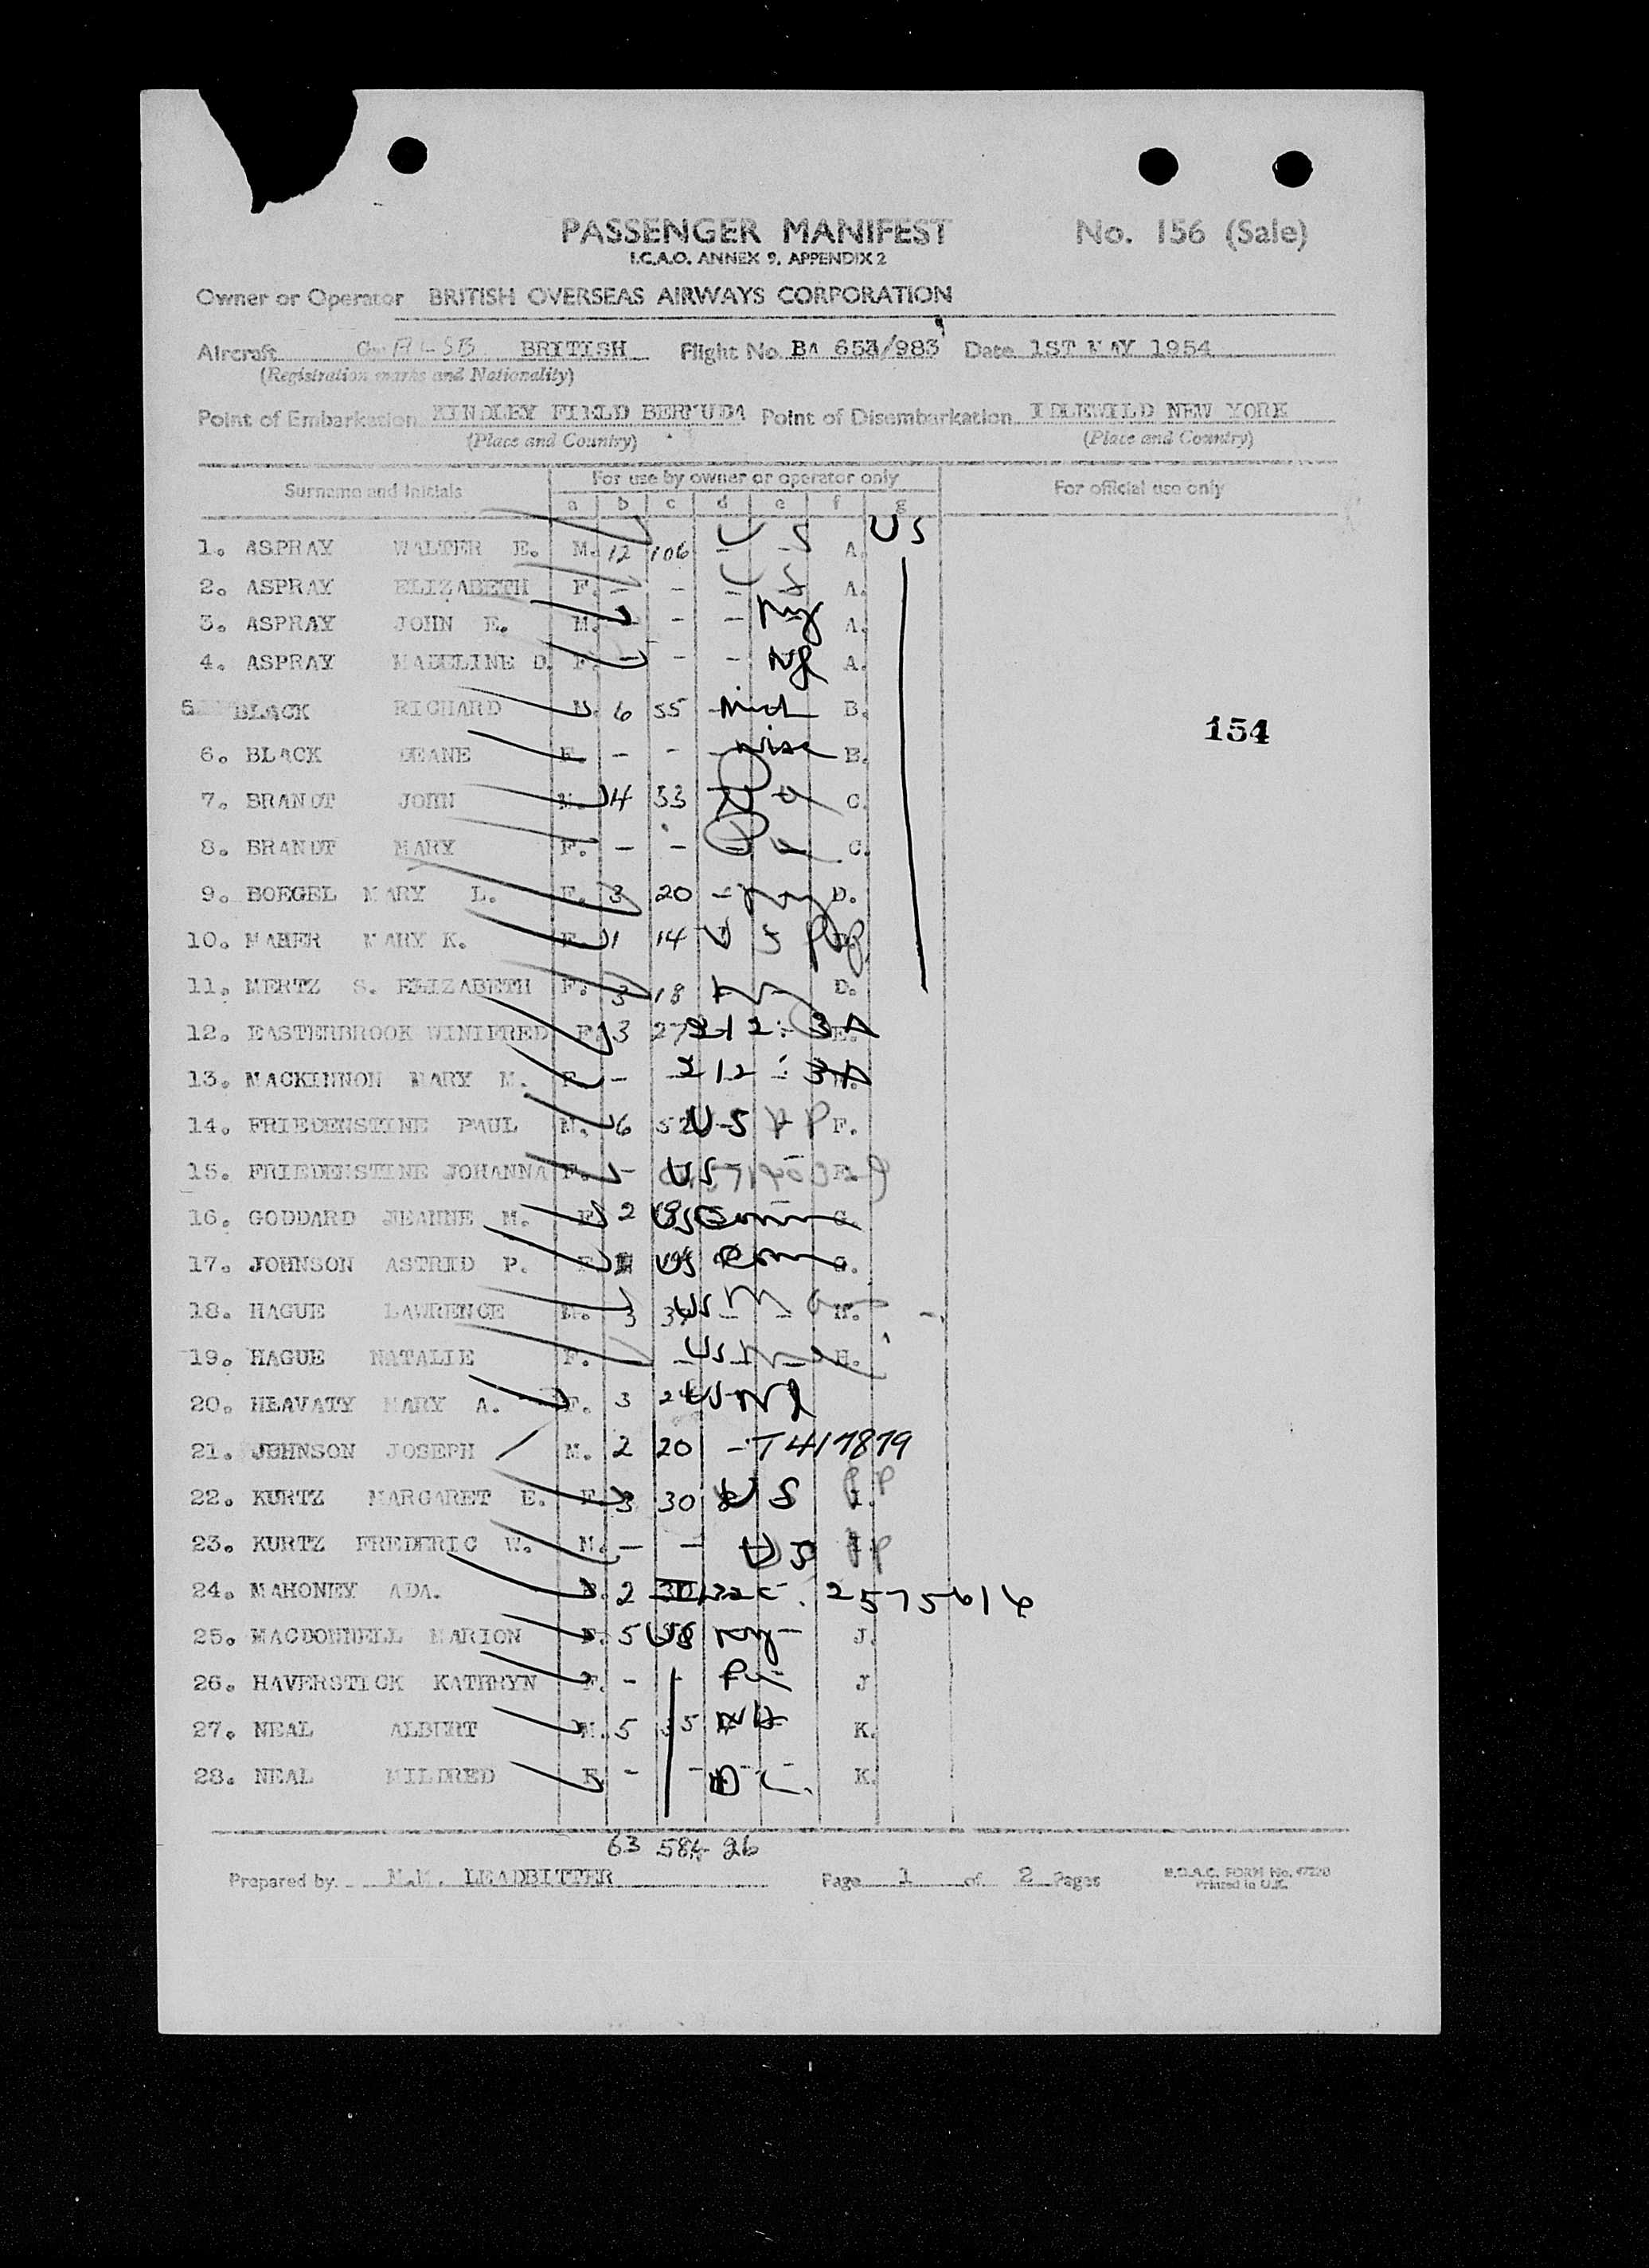 PASSENGER MANIFEST No. 156 (Sale)
I.C.A.O. ANNEX 9, APPENDIX 2
Owner or Operator BRITISH OVERSEAS AIRWAYS CORPORATION
Aircraft BRITISH Flight No. BA 653/983 Date 1ST MAY 1954
(Registration marks and Nationality)
Point of Embarkation KINDLEY FIELD BERMUDA Point of Disembarkation IDLEWILD NEW YORK
(Place and Country) (Place and Country)
Surname and Initials For use by owner or operator only For official use only
a b c d e f g
1. ASPRAY WALTER E. M. 12 106 - - U S A. US
2. ASPRAY ELIZABETH F. - - - U S A.
3. ASPRAY JOHN E. M. - - - NY A.
4. ASPRAY MADELINE D. F. - - - NY A.
5 BLACK RICHARD M. 6 55 - Mich B.
154
6. BLACK DEANE F. - - - Misc B.
7. BRANDT JOHN M. 4 33 C.
8. BRANDT MARY F. - - C.
9. BOEGEL MARY L. F. 3 20 - D.
10. MAHER MARY K. F. 1 14 U S PP
11. MERTZ S. ELIZABETH F. 3 18 D.
12. EASTERBROOK WINIFRED F. 3 27 212: 3A E.
13. MACKINNON MARY M. F. - 212: 3A
14. FRIEDENSTINE PAUL M. 6 52 US PP F.
15. FRIEDENSTINE JOHANNA F. - US F.
16. GODDARD JEANNE M. F. 2 19 US Conn G.
17. JOHNSON ASTRID P. F. US Conn G.
18. HAGUE LAWRENCE M. 3 US H.
19. HAGUE NATALIE F. - US H.
20. HLAVATY MARY A. F. 3 US NY
21. JOHNSON JOSEPH M. 2 20 - T417879
22. KURTZ MARGARET E. F. 3 30 US PP I.
23. KURTZ FREDERIC W. M. - - US PP
24. MAHONEY ADA. F. 2 30 2575616
25. MACDONNELL MARION F. 5 58 US NY - J.
26. HAVERSTICK KATHRYN F. - - J
27. NEAL ALBERT M. 5 K.
28. NEAL MILDRED F. - - K.
63 584 26
Prepared by. M.M. LEADBITTER Page 1 of 2 Pages B.O.A.C. FORM No.
Printed in U.K.